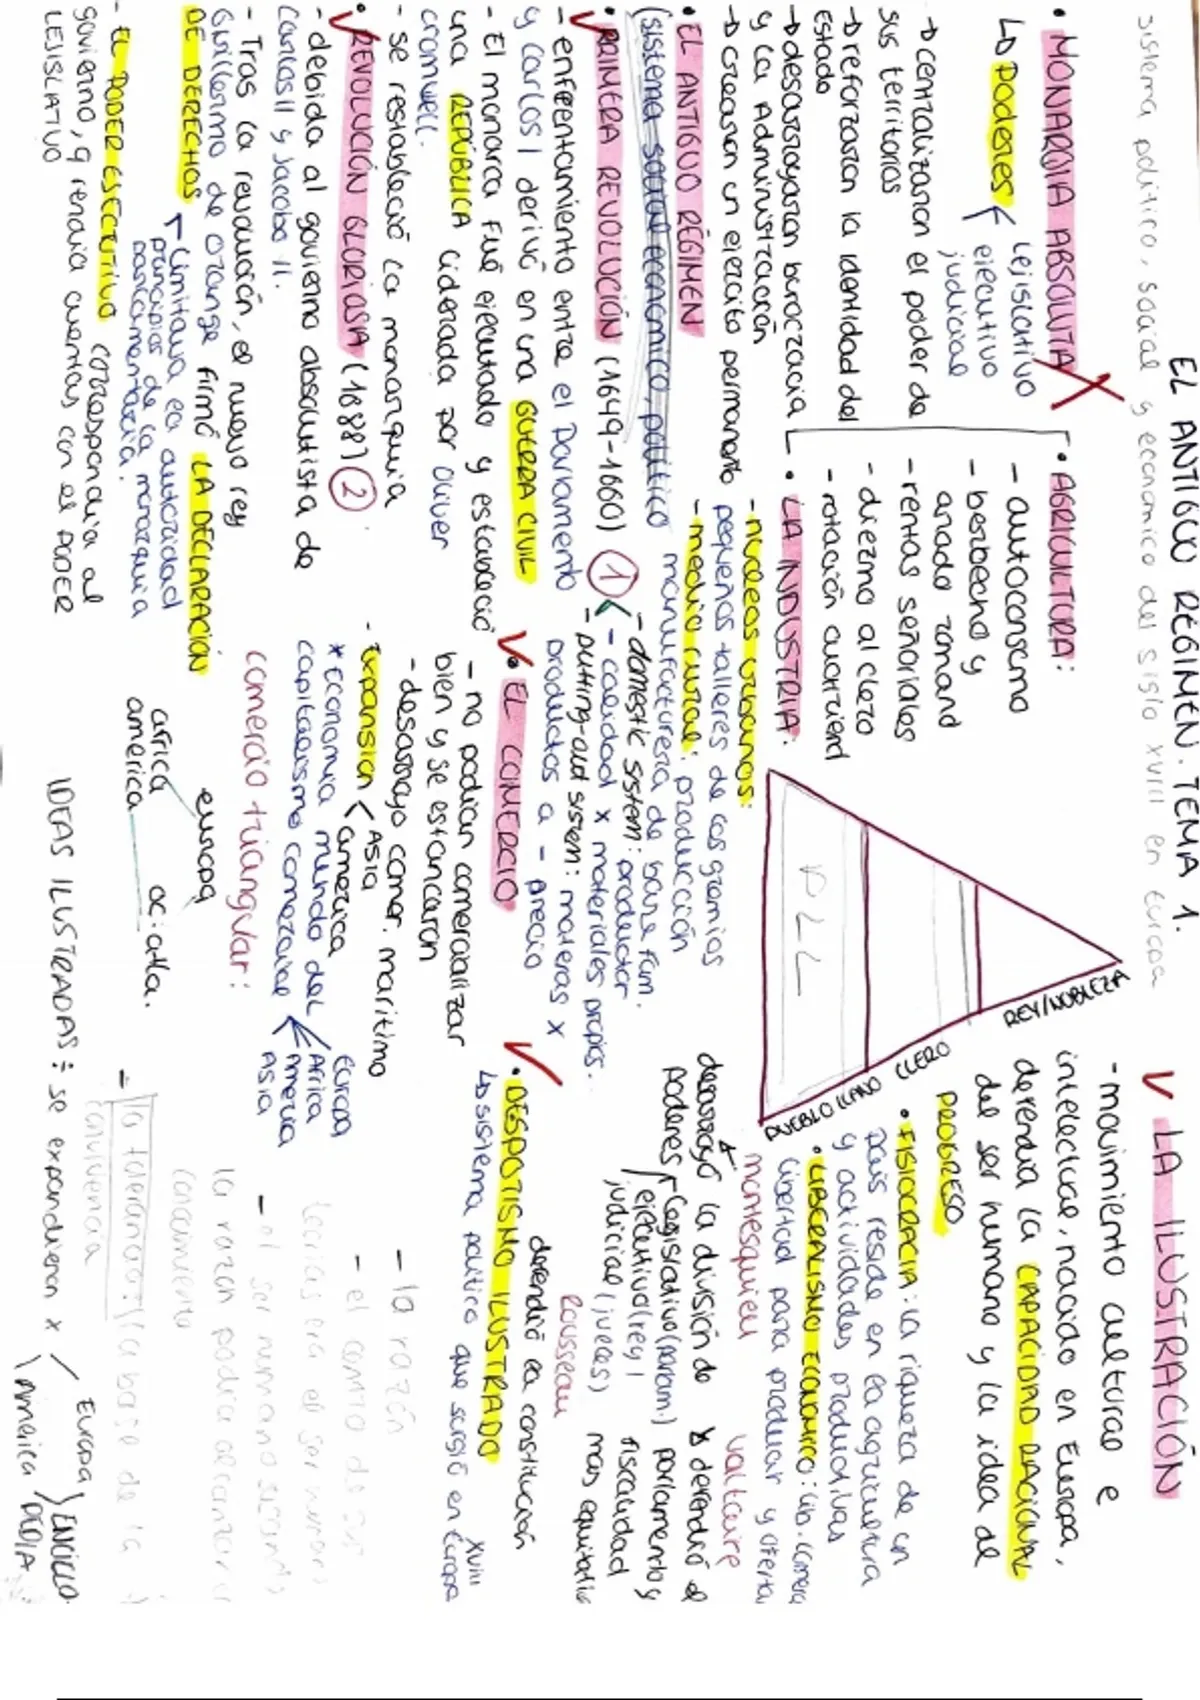 EL ANTIGUO RÉGIMEN. TEMA 1.
sistema político, social y económico del siglo XVIII en Europa
• MONARQUIA ABSOLUTA
↳ poderes
lejislativo
ejecutivo
judicial
→ centralizaron el poder de
sus territorios
→ reforzaron la identidad del
estado
→ desarroyaron burocracia
y la Administración
→ crearon un ejercito permanante
• EL ANTIGUO RÉGIMEN
(sistema social economico, político
• PRIMERA REVOLUCIÓN (1649-1660) 1
- enfrentamiento entre el Parlamento
y Carlos I derivó en una GUERRA CIVIL
- El monarca fue ejecutado y estableció
una REPÚBLICA liderada por Oliver
cromwell.
- se restableció la monarquia
• REVOLUCIÓN GLORIOSA (1688) 2
- debida al govierno absolutista de
Carlos II y Jacobo II.
- Tras la revolución, el nuevo rey
Guillermo de orange firmó LA DECLARACIÓN
DE DERECHOS
Limitava la autoridad
principios de la monarquia
parlamentaria.
- EL PODER ESECUTIVO correspondia al
govierno, q rendia cuentas con el PODER
LEJISLATIVO
• AGRICULTURA:
- autoconsumo
- barbecho y
arado romano
- rentas señoriales
- diezmo al clero
- rotación
• LA INDUSTRIA:
- nucleos urbanos:
pequeños talleres de los gremios
- medio rural: producción
manufacturera de base fam.
- domestic system: productor
- calidad x materiales propios.
- putting-out sistem: materas x
productos a - precio
• EL COMERCIO
- no podian comercializar
bien y se estancaron
- desarroyo comer. maritimo
- Expansion
ASIA
america
* economia mundo del
capitalismo comerciale
Europa
Africa
America
Asia
comercio triangular:
europa
africa
america
oc. atla.
REY/NOBLEZA
CLERO
PUEBLO LLANO
LA ILUSTRACIÓN
- movimiento cultural e
intelectual, nacido en Europa,
defendia la CAPACIDAD RACIONAL
del ser humano y la idea de
PROGRESO
• FISIOCRACIA: la riqueza de un
pais reside en la agricultura
y actividades productivas
• LIBERALISMO ECONOMICO: lib. comerc
libertad para producir y oferta
montesquieu
desarroyó la división de
poderes
Legislativo (parlam.)
ejecutivo (rey)
judicial (jueces)
valtaire
defendió el
parlamento y
fiscalidad
más equitativ
Rousseau
defendió la constitución
• DESPOTISMO ILUSTRADO
↳ sistema político que surgió en Europa
XVIII
- la razón
- el centro de
teorias era el ser humano
- el ser humano
la razon podria alcanzar
conocimiento
- la tolerancia: la base de la
convivencia
IDEAS ILUSTRADAS: se expandieron x
Europa
America
ENCICLO
PEDIA